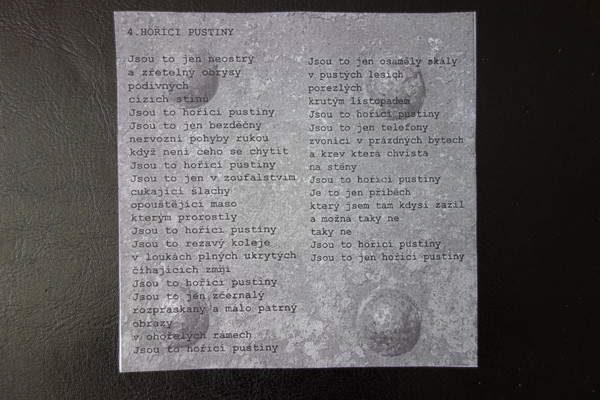 4.HOŘÍCÍ PUSTINY
Jsou to jen neostrý
a zřetelný obrysy
podivných
cizích stínů
Jsou to hořící pustiny
Jsou to jen bezděčný
nervózní pohyby rukou
když není čeho se chytit
Jsou to hořící pustiny
Jsou to jen v zoufalstvím
cukající šlachy
opouštějící maso
kterým prorostly
Jsou to hořící pustiny
Jsou to rezavý koleje
v loukách plných ukrytých
číhajících zmijí
Jsou to hořící pustiny
Jsou to jen zčernalý
rozpraskaný a málo patrný
obrazy
v ohořelých rámech
Jsou to hořící pustiny
Jsou to jen osamělý skály
v pustých lesích
porezlých
krutým listopadem
Jsou to hořící pustiny
Jsou to jen telefony
zvonící v prázdných bytech
a krev která chvístá
na stěny
Jsou to hořící pustiny
Je to jen příběh
který jsem tam kdysi zažil
a možná taky ne
taky ne
Jsou to hořící pustiny
Jsou to jen hořící pustiny